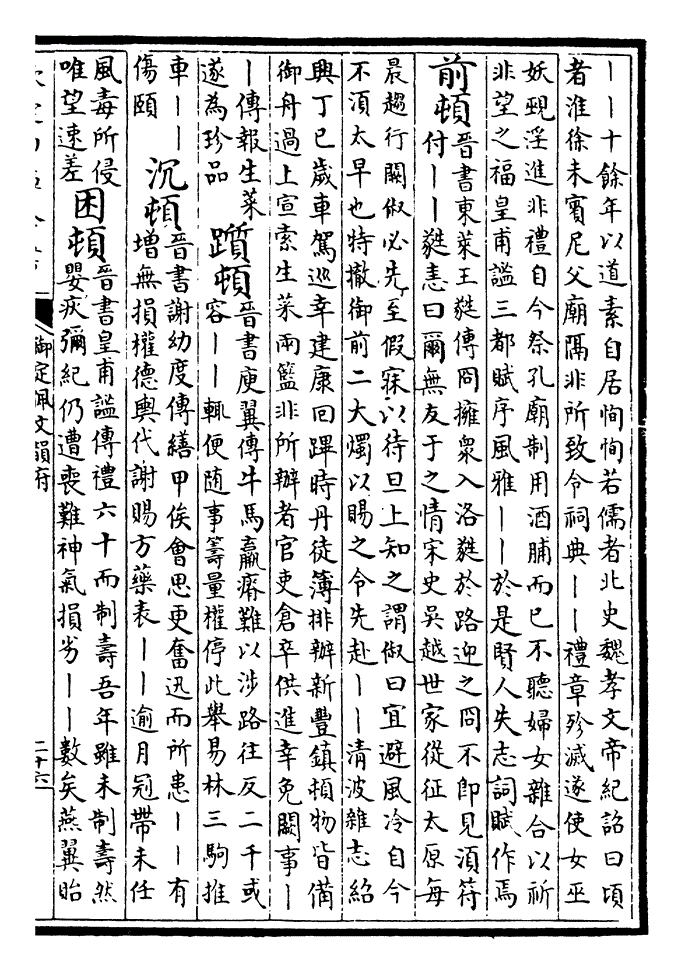 ｜｜十餘年以道素自居恂恂若儒者北史魏孝文帝紀詔曰頃
者淮徐未賓尼父廟隔非所致令祠典｜｜禮章殄滅遂使女巫
妖覡淫進非禮自今祭孔廟制用酒脯而已不聽婦女雜合以祈
非望之福皇甫謐三都賦序風雅｜｜於是賢人失志詞賦作焉
前頓
晉書東萊王蕤傳冏擁衆入洛蕤於路迎之冏不即見湏符
付｜｜蕤恚曰爾無友于之情宋史吳越世家從征太原每
晨趨行闕俶必先至假寐以待旦上知之謂俶曰宜避風冷自今
不湏太早也特撤御前二大燭以賜之令先赴｜｜清波雜志紹
興丁巳歲車駕巡幸建康回蹕時丹徒簿排辦新豐鎮頓物皆備
御舟過上宣索生菜兩籃非所辦者官吏倉卒供進幸免闕事｜
｜傳報生菜
遂為珍品
躓頓
晉書庾翼傳牛馬羸瘠難以涉路往反二千或
容｜｜輒便随事籌量權停此舉易林三駒推
車｜｜
傷頤
沉頓
晉書謝幼度傳繕甲俟會思更奮迅而所患｜｜有
增無損權德輿代謝賜方藥表｜｜逾月冠帶未任
風毒所侵
唯望速差
困頓
晉書皇甫謐傳禮六十而制壽吾年雖未制壽然
嬰疾彌紀仍遭喪難神氣損劣｜｜數矣燕翼貽
御定佩文韻府
二十六